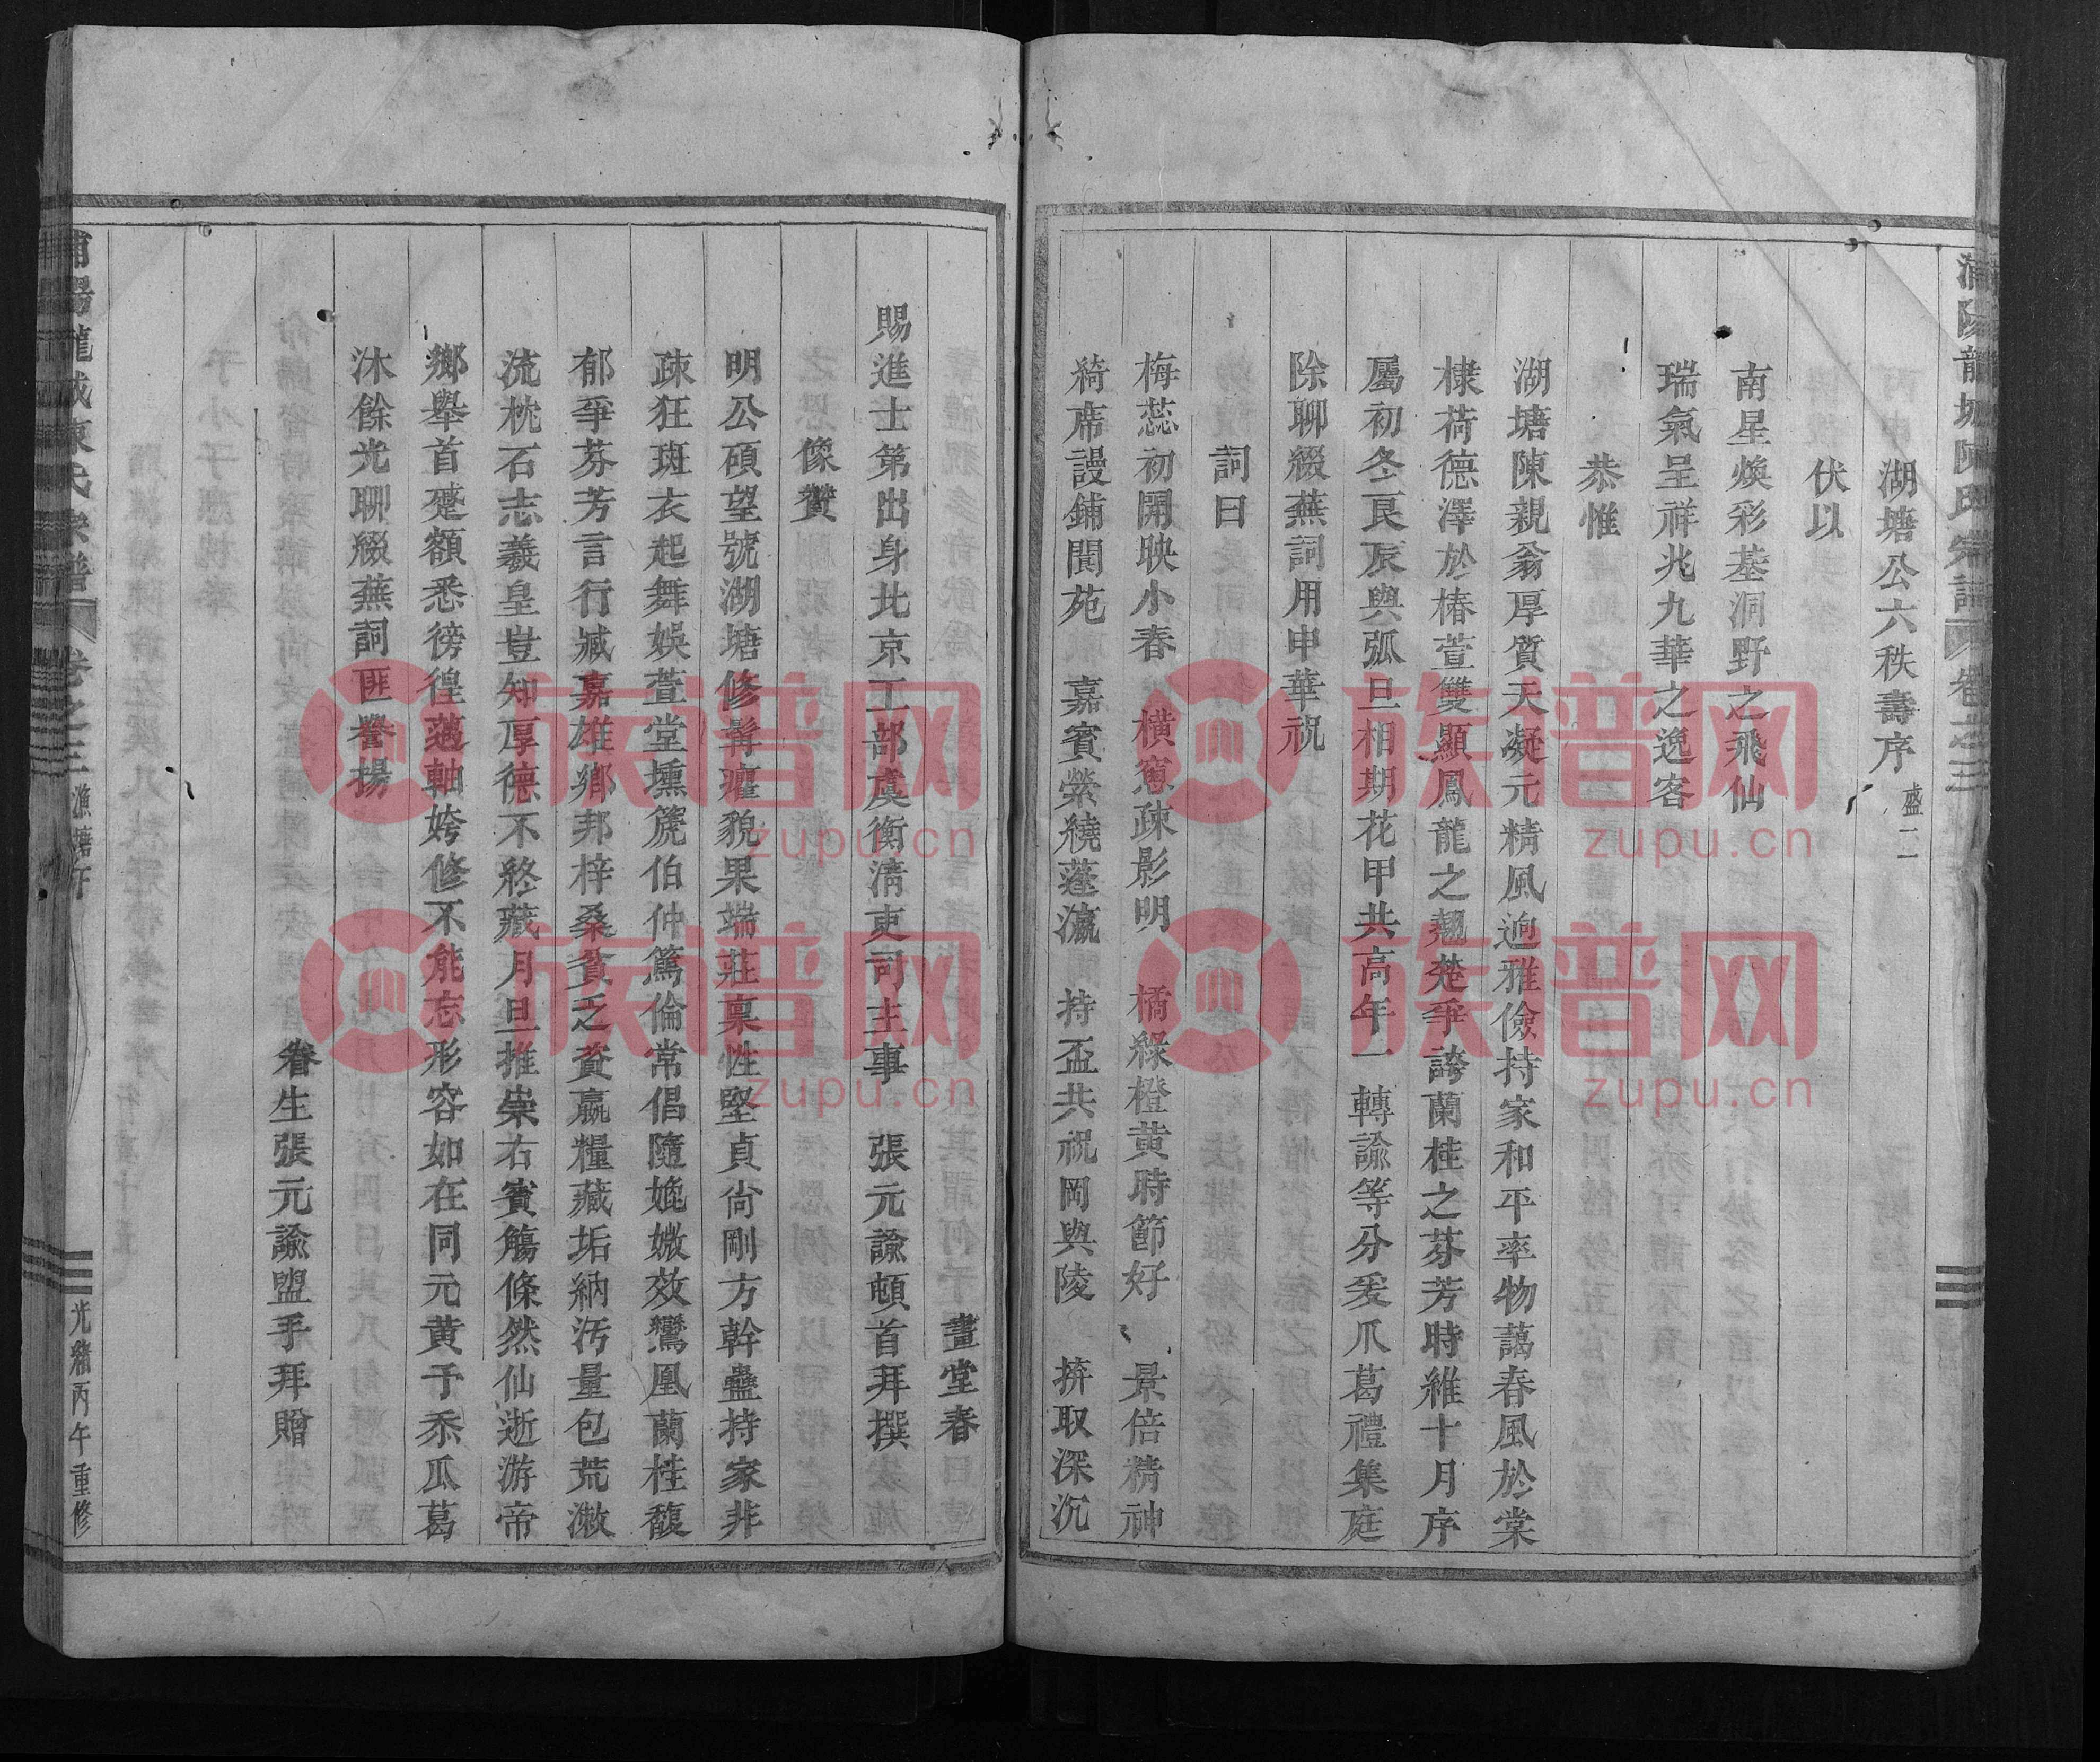 浦陽龍城陳氏宗譜 卷之三
湖塘公六秩壽序 盛二
伏以
南星煥彩基洞野之飛仙
瑞氣呈祥兆九華之逸客
恭惟
湖塘陳親翁厚質天凝元精風逈雅儉持家和平率物藹春風於棠
棣荷德澤於椿萱雙顯鳳龍之翹楚爭誇蘭桂之芬芳時維十月序
屬初冬良辰與弧旦相期花甲共高年一轉諭等分爰爪葛禮集庭
除聊綴蕪詞用申華祝
詞曰
梅蕊初開映小春 橫窻疎影明 橘綠橙黃時節好 景倍精神
綺席謾鋪閬苑 嘉賓縈繞蓬瀛 持盃共祝岡與陵 擠取深沉
畫堂春
賜進士第出身北京工部虞衡淸吏司主事 張元諭頓首拜撰
像贊
明公碩望號湖塘修髯癯貌果端莊稟性堅貞尙剛方幹蠱持家非
疎狂斑衣起舞娛萱堂壎篪伯仲篤倫常倡隨婉媺效鸞凰蘭桂馥
郁爭芬芳言行臧嘉雄鄉邦梓桑貧乏資贏糧藏垢納汚量包荒漱
流枕石志羲皇豈知厚德不終藏月旦推崇右賓觴條然仙逝游帝
鄉舉首蹙額悉徬徨薖軸姱修不能忘形容如在同元黃予忝瓜葛
沐餘光聊綴蕪詞匪譽揚
眷生張元諭盥手拜贈
浦陽龍城陳氏宗譜 卷之三 漁塘序 光緒丙午重修
族谱网
zupu.cn
族谱网
zupu.cn
族谱网
zupu.cn
族谱网
zupu.cn